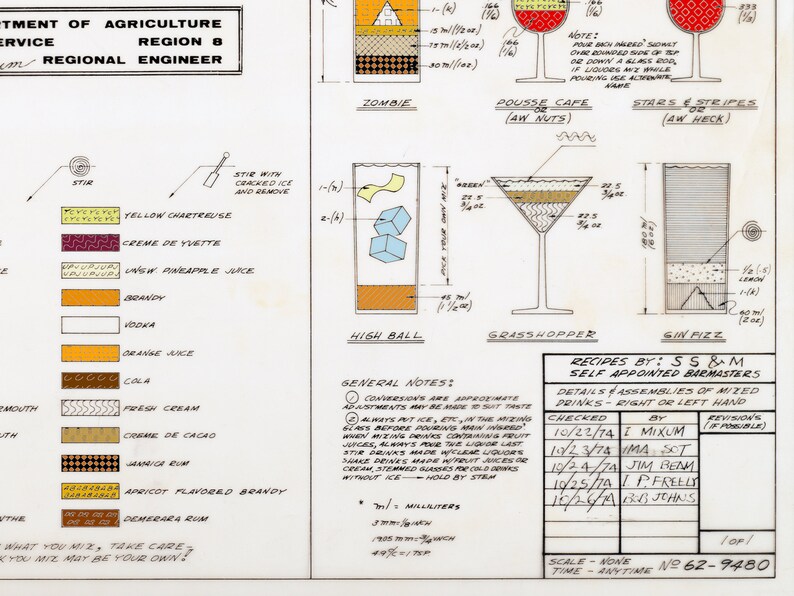 RTMENT OF AGRICULTURE
ERVICE REGION 8
REGIONAL ENGINEER
1-(K)
15 ml (1/2 oz)
75 ml (2 1/2 oz)
30 ml (1 oz.)
ZOMBIE
.166
(1/6)
.166
(1/6)
.166
(1/6)
POUSSE CAFE
OR
(AW NUTS)
NOTE:
POUR EACH INGRED' SLOWLY
OVER ROUNDED SIDE OF TSP
OR DOWN A GLASS ROD.
IF LIQUORS MIX WHILE
POURING USE ALTERNATE
NAME
.333
(1/3)
STARS & STRIPES
OR
(AW HECK)
STIR
STIR WITH
CRACKED ICE
AND REMOVE
YELLOW CHARTREUSE
CREME DE YVETTE
UNSW. PINEAPPLE JUICE
BRANDY
VODKA
ORANGE JUICE
COLA
RMOUTH
FRESH CREAM
UTH
CREME DE CACAO
JAMAICA RUM
APRICOT FLAVORED BRANDY
NTHE
DEMERARA RUM
WHAT YOU MIX, TAKE CARE-
K YOU MIX MAY BE YOUR OWN!
1-(n)
2-(h)
PICK YOUR OWN MIX
45 ml
(1 1/2 oz)
HIGH BALL
"GREEN"
22.5
3/4 oz.
22.5
3/4 oz.
22.5
3/4 oz.
GRASSHOPPER
180 ml
(6 oz)
1/2 (.5)
LEMON
1-(K)
60 ml
(2 oz)
GIN FIZZ
GENERAL NOTES:
1 CONVERSIONS ARE APPROXIMATE
ADJUSTMENTS MAY BE MADE TO SUIT TASTE
2 ALWAYS PUT ICE, ETC, IN THE MIXING
GLASS BEFORE POURING MAIN INGRED'
WHEN MIXING DRINKS CONTAINING FRUIT
JUICES, ALWAYS POUR THE LIQUOR LAST.
STIR DRINKS MADE W/CLEAR LIQUORS
SHAKE DRINKS MADE W/FRUIT JUICES OR
CREAM, STEMMED GLASSES FOR COLD DRINKS
WITHOUT ICE HOLD BY STEM
* ml = MILLILITERS
3 mm = 1/8 INCH
19.05 mm = 3/4 INCH
4.9 CC = 1 TSP.
RECIPES BY: SS&M
SELF APPOINTED BARMASTERS
DETAILS & ASSEMBLIES OF MIXED
DRINKS - RIGHT OR LEFT HAND
CHECKED BY REVISIONS
(IF POSSIBLE)
10/22/74 I MIXUM
10/23/74 IMA SOT
10/24/74 JIM BEAM
10/25/74 I. P. FREELY
10/26/74 BOB JOHNS
1 OF 1
SCALE - NONE
TIME - ANYTIME
No 62-9480